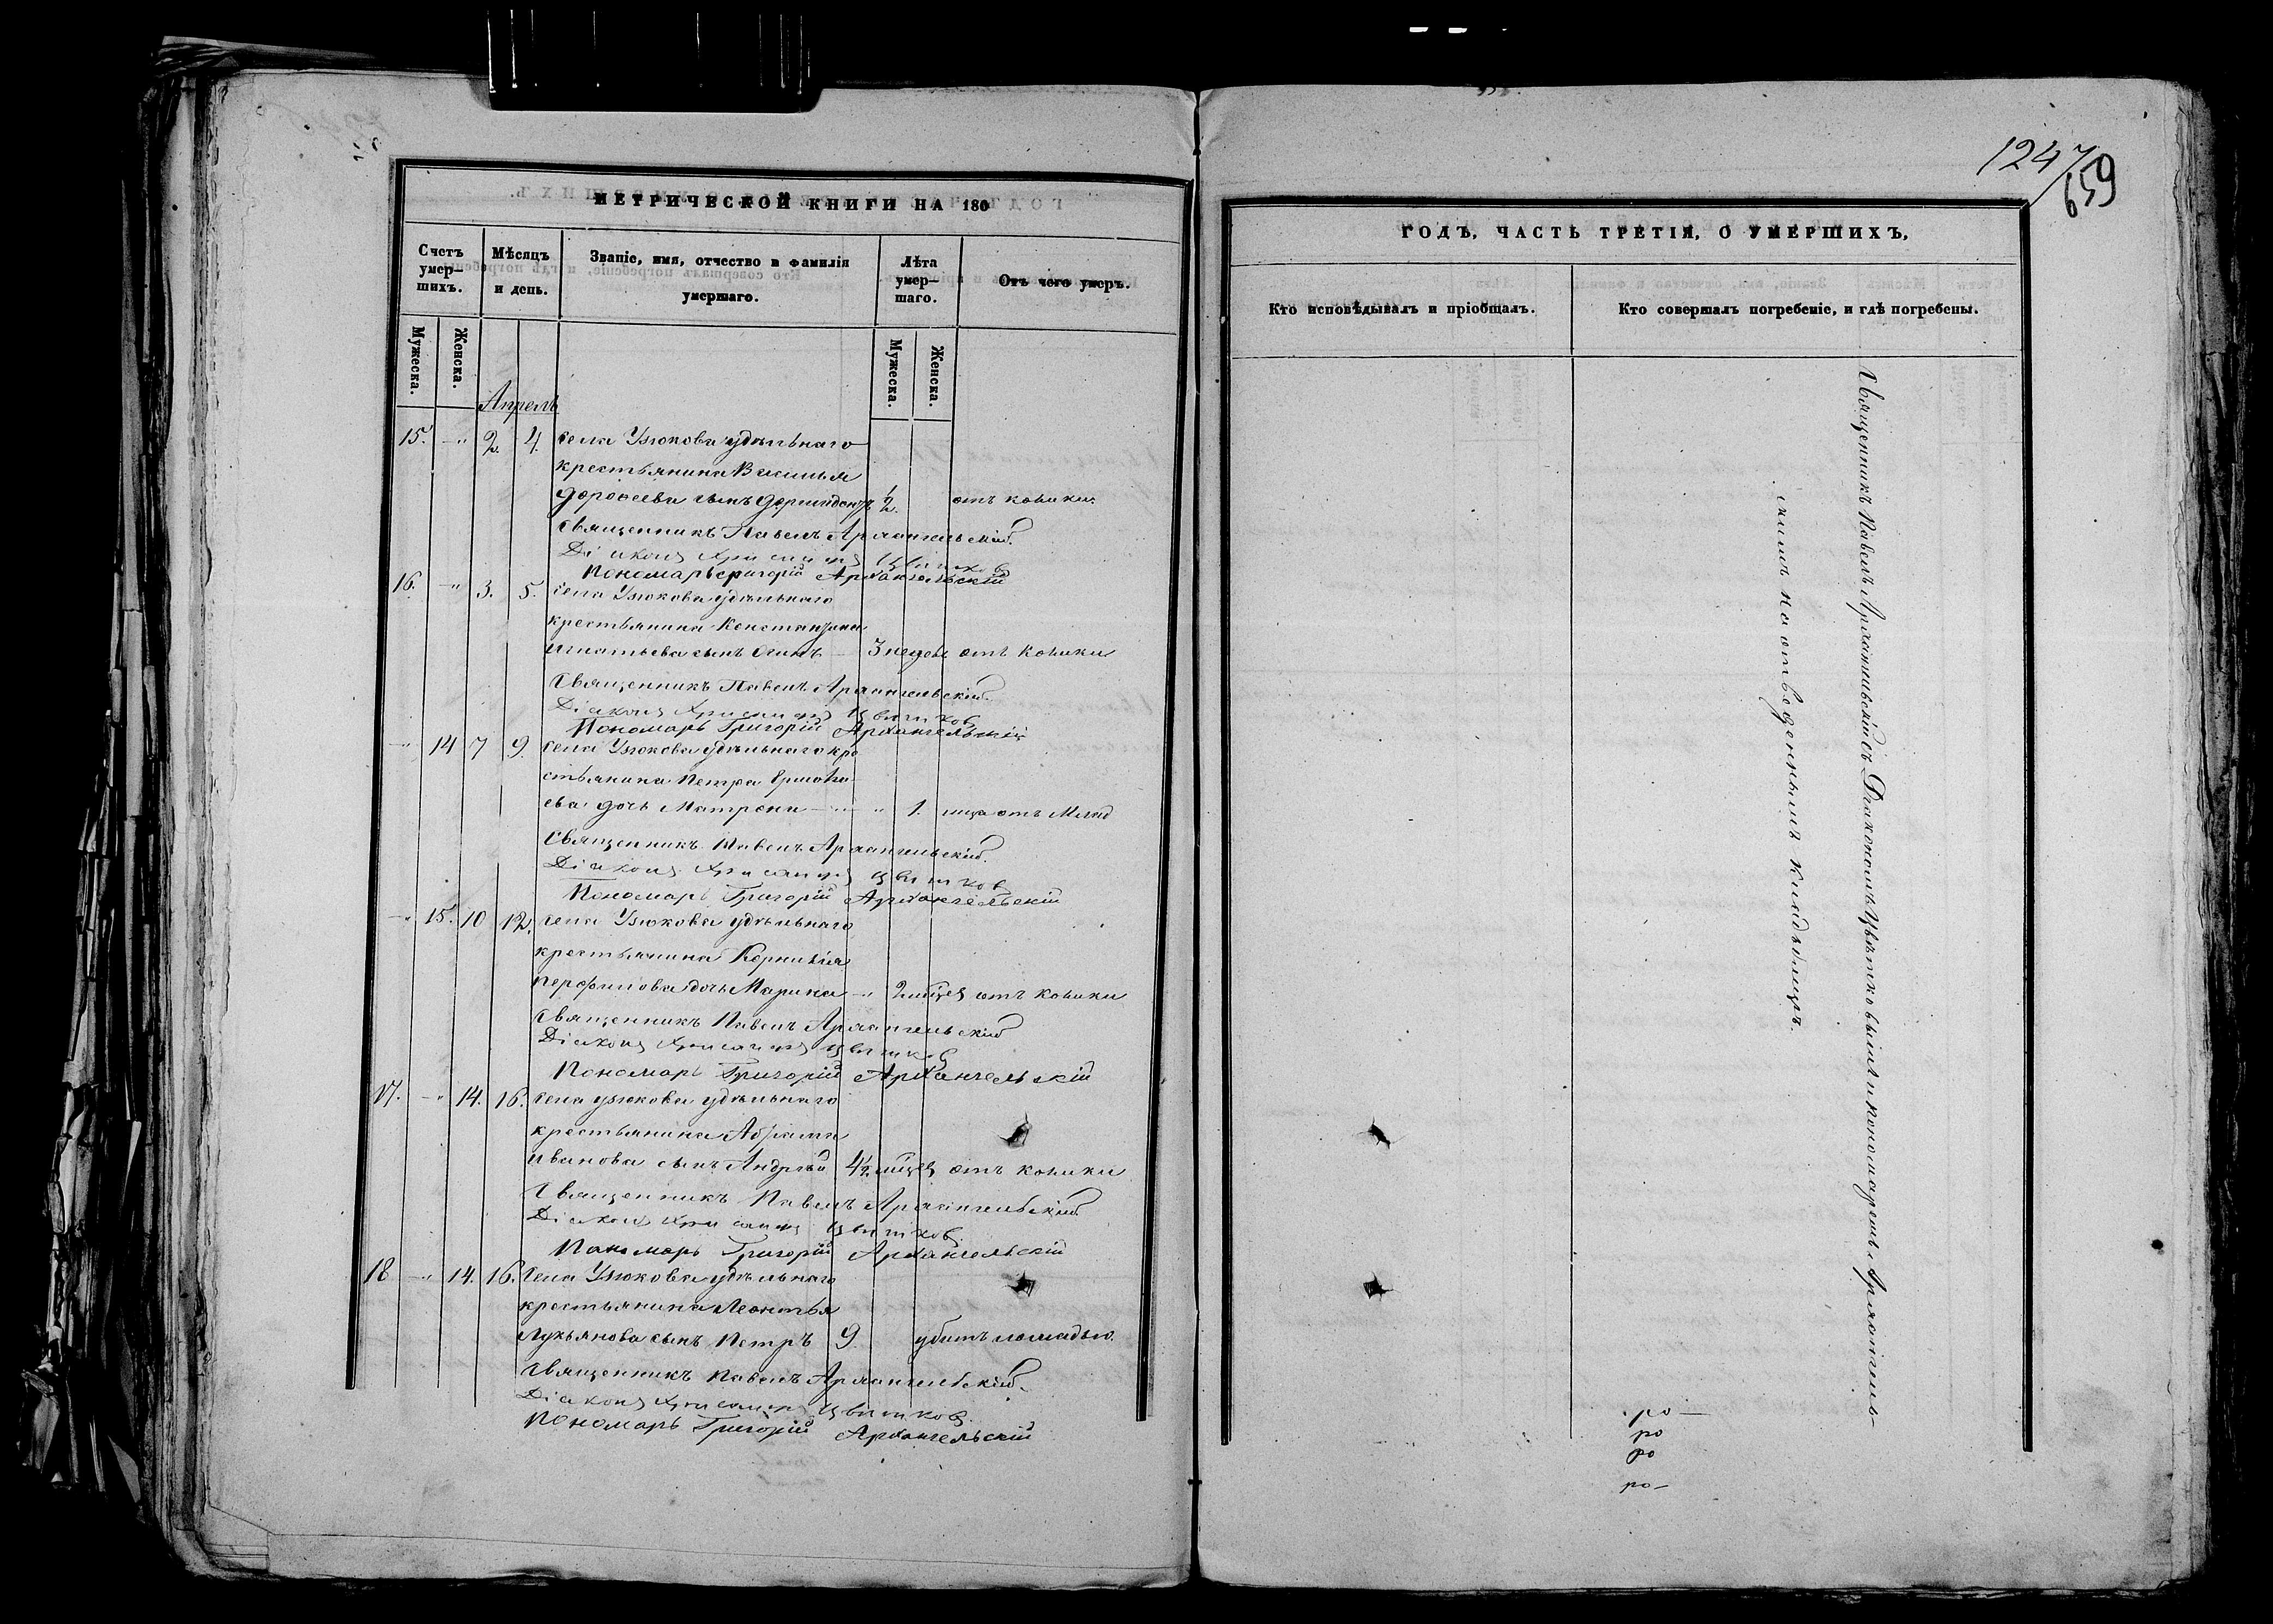 МЕТРИЧЕСКОЙ КНИГИ НА 180
Счетъ умер-шихъ.
Мѣсяцъ и день.
Званіе, имя, отчество и фамилія умершаго.
Лѣта умер-шаго.
Отъ чего умеръ.
Мужеска.
Женска.
Мужеска.
Женска.
Апрель
15. -„ 2. 4. села Узюкова удѣльнаго
крестьянина Василья
Дорофеева сынъ 1/2. отъ кошики
Священникъ Павелъ Архангельскій
Діаконъ Цвѣтковъ
Пономарь Григорій Архангельскій
16. -„ 3. 5. села Узюкова удѣльнаго
крестьянина Константина
Игнатьева сынъ 3 недель отъ кошики
Священникъ Павелъ Архангельскій
Діаконъ Цвѣтковъ
Пономарь Григорій Архангельскій
-„ 14 7 9. села Узюкова удѣльнаго кре
стьянина Петра Ермола
ева дочь Матрона -„ 1. отъ
Священникъ Павелъ Архангельскій
Діаконъ Цвѣтковъ
Пономарь Григорій Архангельскій
-„ 15. 10 12. села Узюкова удѣльнаго
крестьянина Корнилія
Перфилова дочь Марина -„ 2 мѣсец отъ кошики
Священникъ Павелъ Архангельскій
Діаконъ Цвѣтковъ
Пономарь Григорій Архангельскій
17. -„ 14. 16. села узюкова удѣльнаго
крестьянина Абрама
Иванова сынъ Андрей 4 1/2 мѣсец отъ кошики
Священникъ Павелъ Архангельскій
Діаконъ Цвѣтковъ
Пономарь Григорій Архангельскій
18 -„ 14. 16. села Узюкова удѣльнаго
крестьянина Леонтья
Лукьянова сынъ Петръ 9. убитъ лошадью.
Священникъ Павелъ Архангельскій
Діаконъ Цвѣтковъ
Пономарь Григорій Архангельскій
1247
659
ГОДЪ, ЧАСТЬ ТРЕТІЯ, О УМЕРШИХЪ,
Кто исповѣдывалъ и пріобщалъ.
Кто совершалъ погребеніе, и гдѣ погребены.
Священникъ Павелъ Архангельскій съ Діакономъ Цвѣтковымъ и пономаремъ Архангель-
скимъ на отведенномъ кладбищѣ.
ро-
ро
ро
ро-